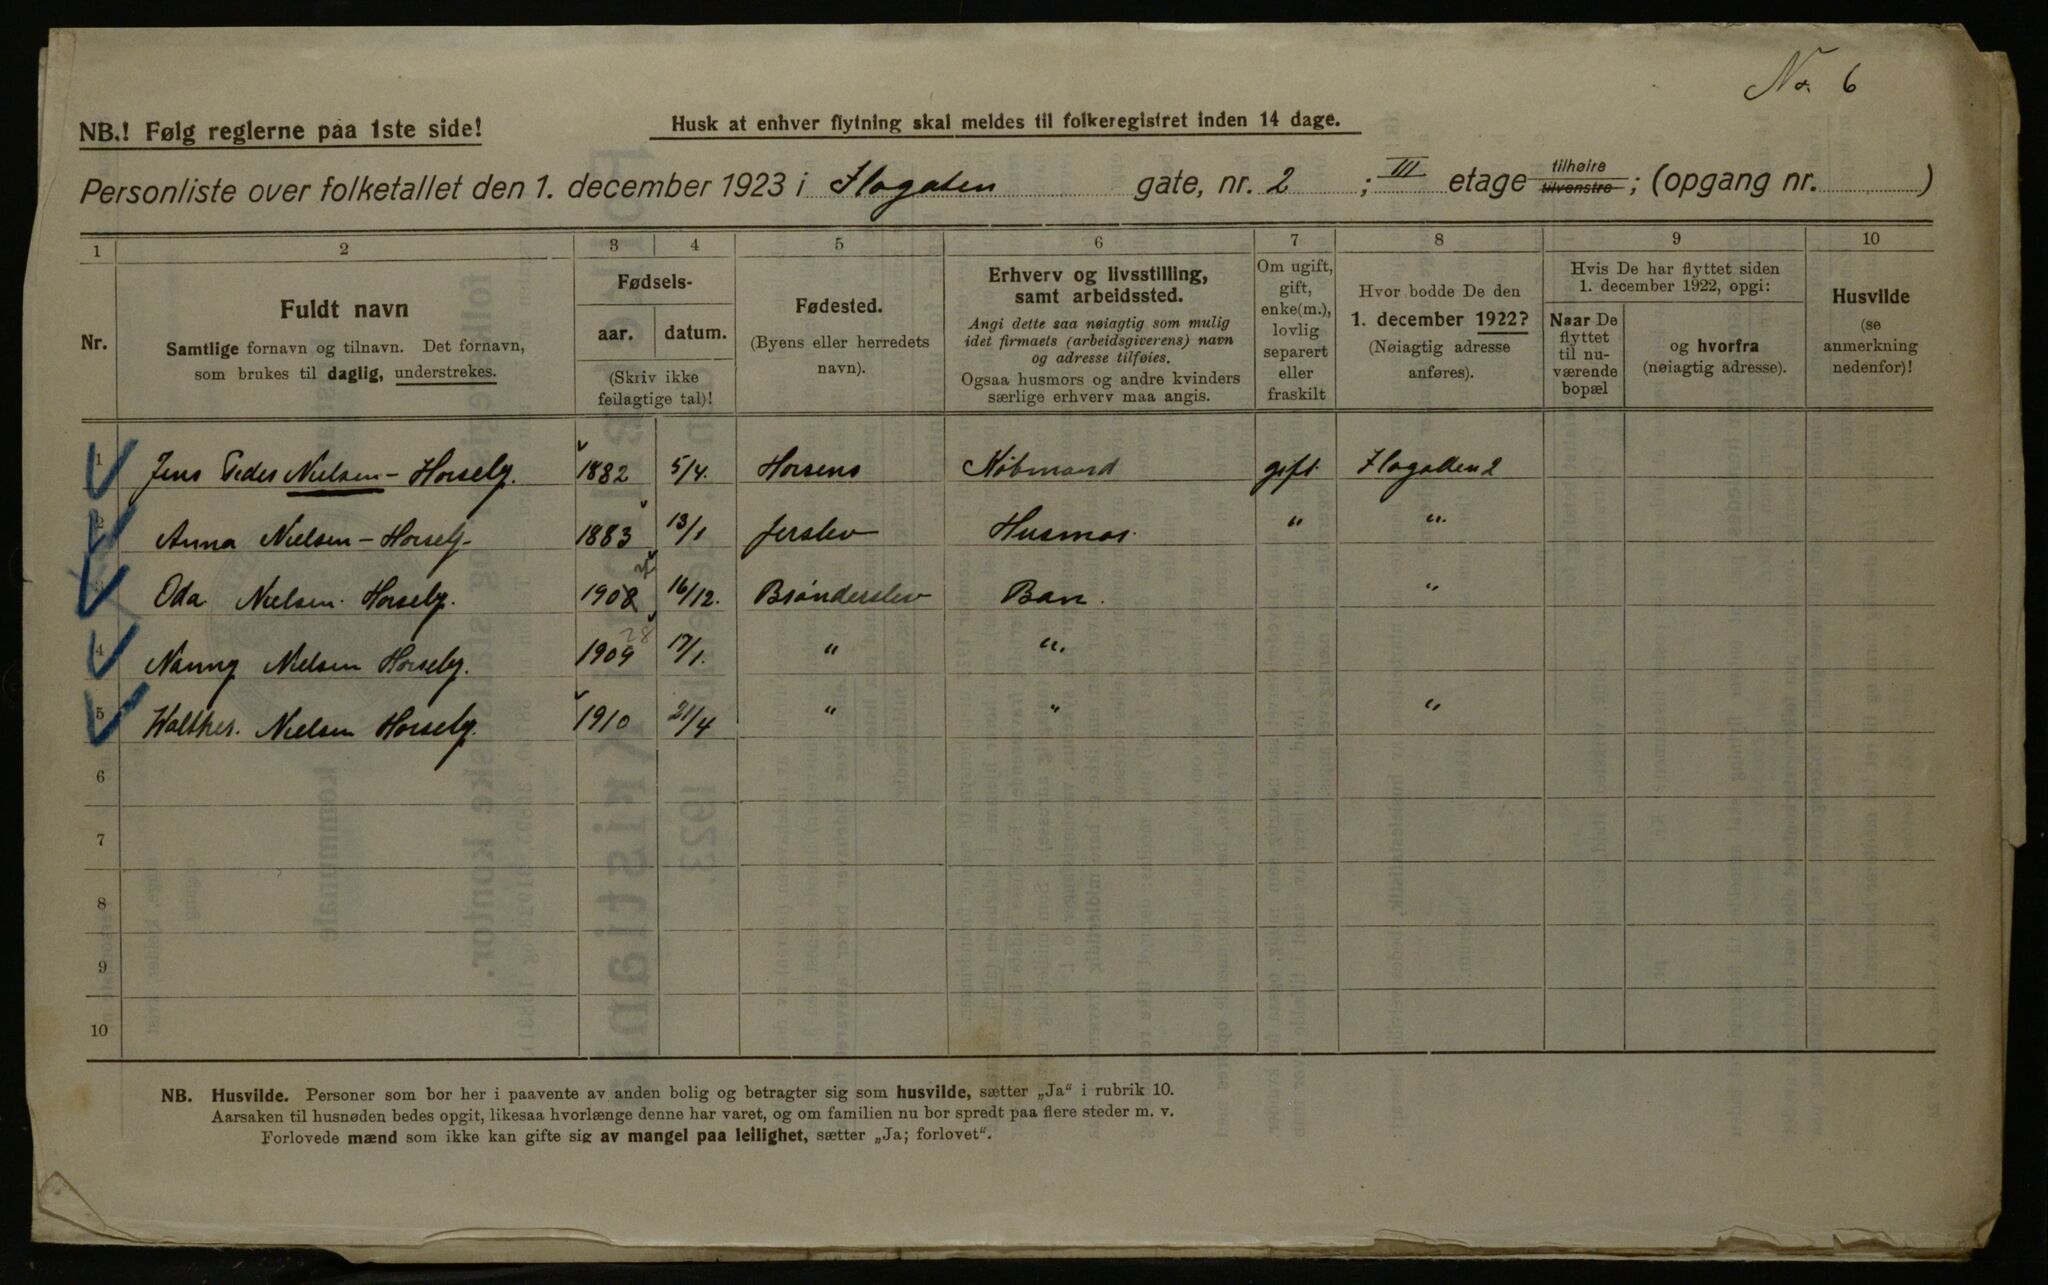 No. 6
NB.! Følg reglerne paa 1ste side!
Husk at enhver flytning skal meldes til folkeregistret inden 14 dage.
Personliste over folketallet den 1. december 1923 i Flogaten gate, nr. 2 ; III etage tilhøire tilvenstre ; (opgang nr. )
1 2 3 4 5 6 7 8 9 10
Nr.
Fuldt navn
Samtlige fornavn og tilnavn. Det fornavn,
som brukes til daglig, understrekes.
Fødsels-
aar. datum.
(Skriv ikke
feilagtige tal)!
Fødested.
(Byens eller herredets
navn).
Erhverv og livsstilling,
samt arbeidssted.
Angi dette saa nøiagtig som mulig
idet firmaets (arbeidsgiverens) navn
og adresse tilføies.
Ogsaa husmors og andre kvinders
særlige erhverv maa angis.
Om ugift,
gift,
enke(m.),
lovlig
separert
eller
fraskilt
Hvor bodde De den
1. december 1922?
(Nøiagtig adresse
anføres).
Hvis De har flyttet siden
1. december 1922, opgi:
Naar De
flyttet
til nu-
værende
bopæl
og hvorfra
(nøiagtig adresse).
Husvilde
(se
anmerkning
nedenfor)!
1 Jens Peder Nielsen - Horseby. 1882 5/4. Horsens Købmand gift. Flogaden 2
2 Anna Nielsen - Horseby. 1883 13/1 Jerslev Husmor. " "
3 Oda Nielsen Horseby. 1908 16/12. Brønderslev Barn. "
4 Nanny Nielsen Horseby. 1909 28 17/1. " "
5 Walther. Nielsen Horseby. 1910 21/4 " " "
6
7
8
9
10
NB. Husvilde. Personer som bor her i paavente av anden bolig og betragter sig som husvilde, sætter „Ja" i rubrik 10.
Aarsaken til husnøden bedes opgit, likesaa hvorlænge denne har varet, og om familien nu bor spredt paa flere steder m. v.
Forlovede mænd som ikke kan gifte sig av mangel paa leilighet, sætter „Ja; forlovet".